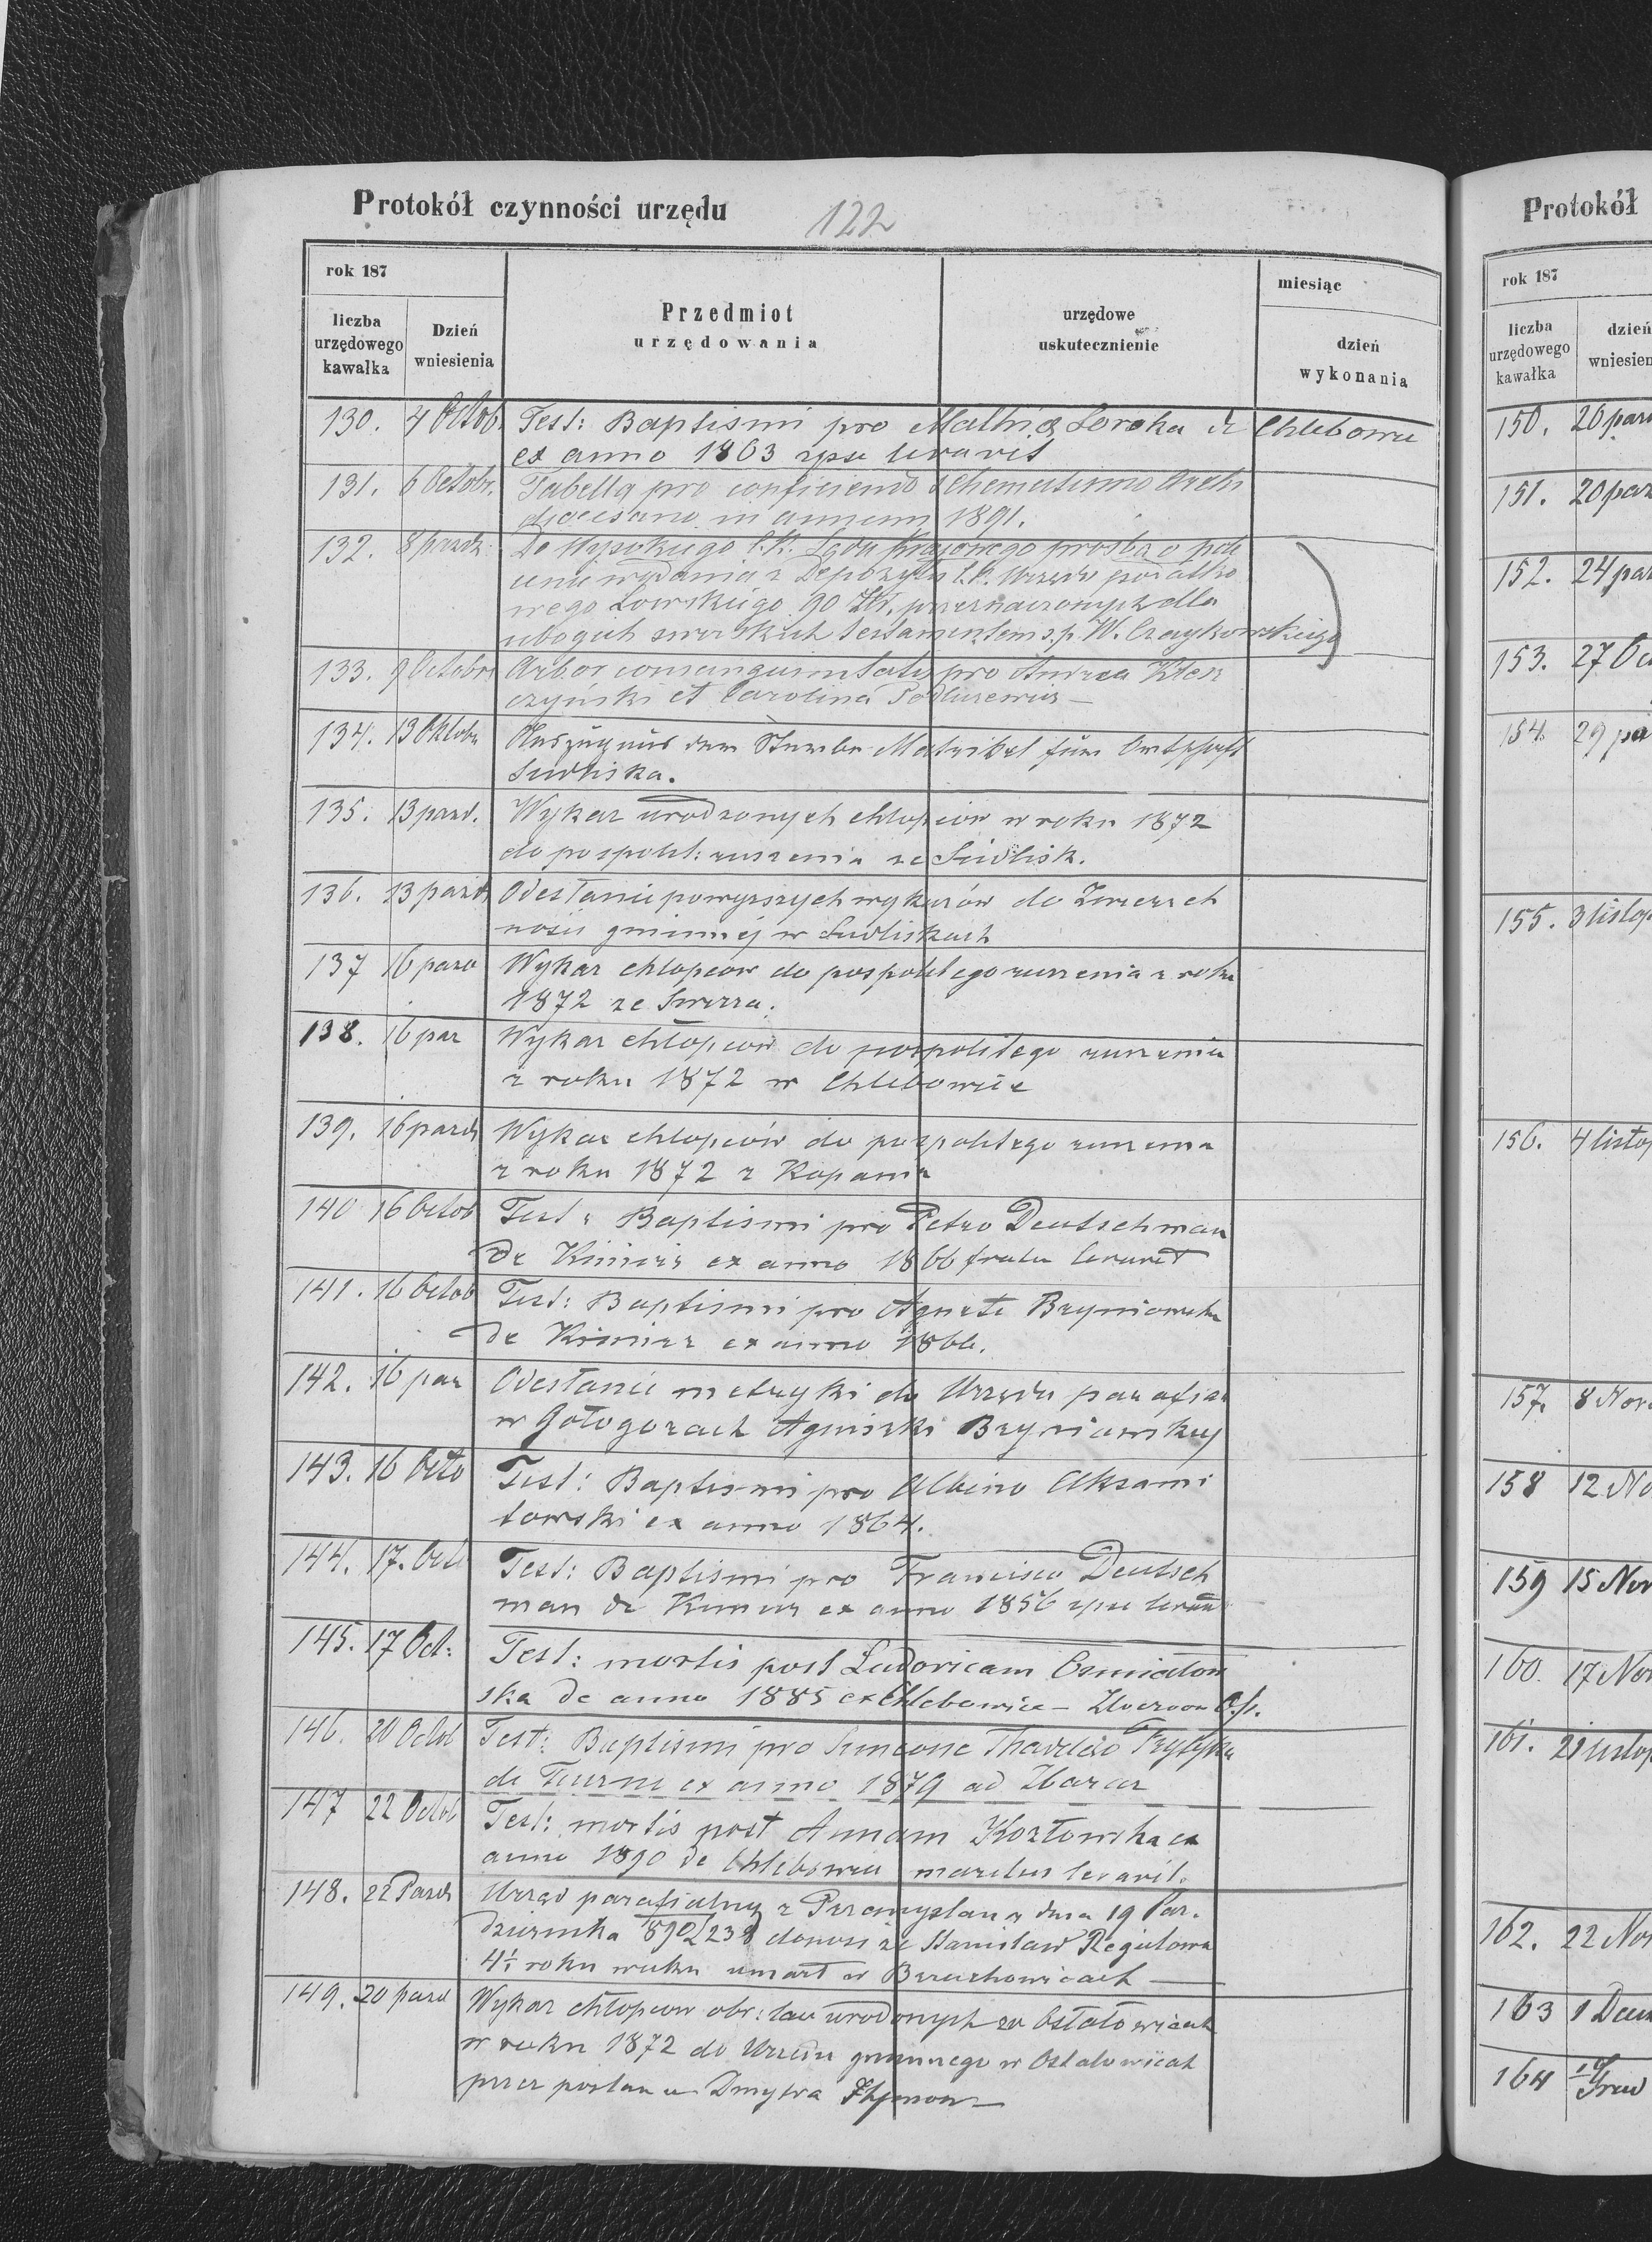 Protokół czynności urzędu 122
rok 187
liczba urzędowego kawałka
Dzień wniesienia
Przedmiot urzędowania
urzędowe uskutecznienie
miesiąc
dzień wykonania
130. 4 Octob. Test: Baptismi pro Mathia Soroka de Chlebowice
ex anno 1863 ipse levavit
131. 6 Octobr. Tabella pro conficiendo Schematismo Archi
diocesano in annum 1891.
132. 8 pazdz. Do Wysokiego C.K. Sądu Krajowego prośba o pole
cenie wydania z Depozytu C.K. Urzędu podatko
wego Lwowskiego 90 Złr. przeznaczonych dla
ubogich swirskich testamentem s.p. W. Czaykowskiego
133. 9 Octobris Arbor consanguinitatis pro Andrea
czyński et Carolina
134. 13 Oktobr Auszug aus der Sterbe Matrikel für Ortschaft
Siedliska.
135. 13 pazd. Wykaz urodzonych chłopców w roku 1872
do pospolit: ruszenia ze Siedlisk.
136. 13 pazdz Odesłanie powyższych wykazów do Zwierzch
ności gminnej w Siedliskach
137 16 pazd Wykaz chłopców do pospolitego ruszenia z roku
1872 ze Swirza.
138. 16 paz Wykaz chłopców do pospolitego ruszenia
z roku 1872 w Chlebowice
139. 16 pazdz Wykaz chłopców do pospolitego ruszenia
z roku 1872 z Kopania
140 16 Octob Test: Baptismi pro Petro Deutschman
de Kimirz ex anno 1866 frater levavit
141. 16 Octob Test: Baptismi pro Agnete Bryniowska
de Kimirz ex anno 1866.
142. 16 paz Odesłanie metryki do Urzędu parafial
w Gołogorach Agnieszki Bryniowskiej
143. 16 Octo Test: Baptismi pro Albino Aksami
towski ex anno 1864.
144. 17. Octo Test: Baptismi pro Francisco Deutsch
man de Kimirz ex anno 1856 ipse levavit
145. 17 Oct: Test: mortis post Ludovicam
ska de anno 1885 ex Chlebowice —
146. 20 Octob Test: Baptismi pro Simeone Thaddeo
de ex anno 1879 ad Zbaraz
147 22 Octob Test: mortis post Annam Kozłowska ex
anno 1890 de Chlebowice maritus levavit.
148. 22 Pazdz Urząd parafialny z Przemyslan z dnia 19 Paz.
dziernika 890/238 donosi że Stanisław
4½ roku wieku umarł w Brzuchowicach —
149. 20 pazd Wykaz chłopców obr: lac urodzonych w Ostałowicach
w roku 1872 do Urzędu gminnego w Ostałowicach
przez posłańca Dmytra
Protokół
rok 187
liczba urzędowego kawałka
dzień
150.
151.
152.
153.
154.
155.
156.
157. 8
158 12
159 15
160. 17
161.
162. 22
163 1
164